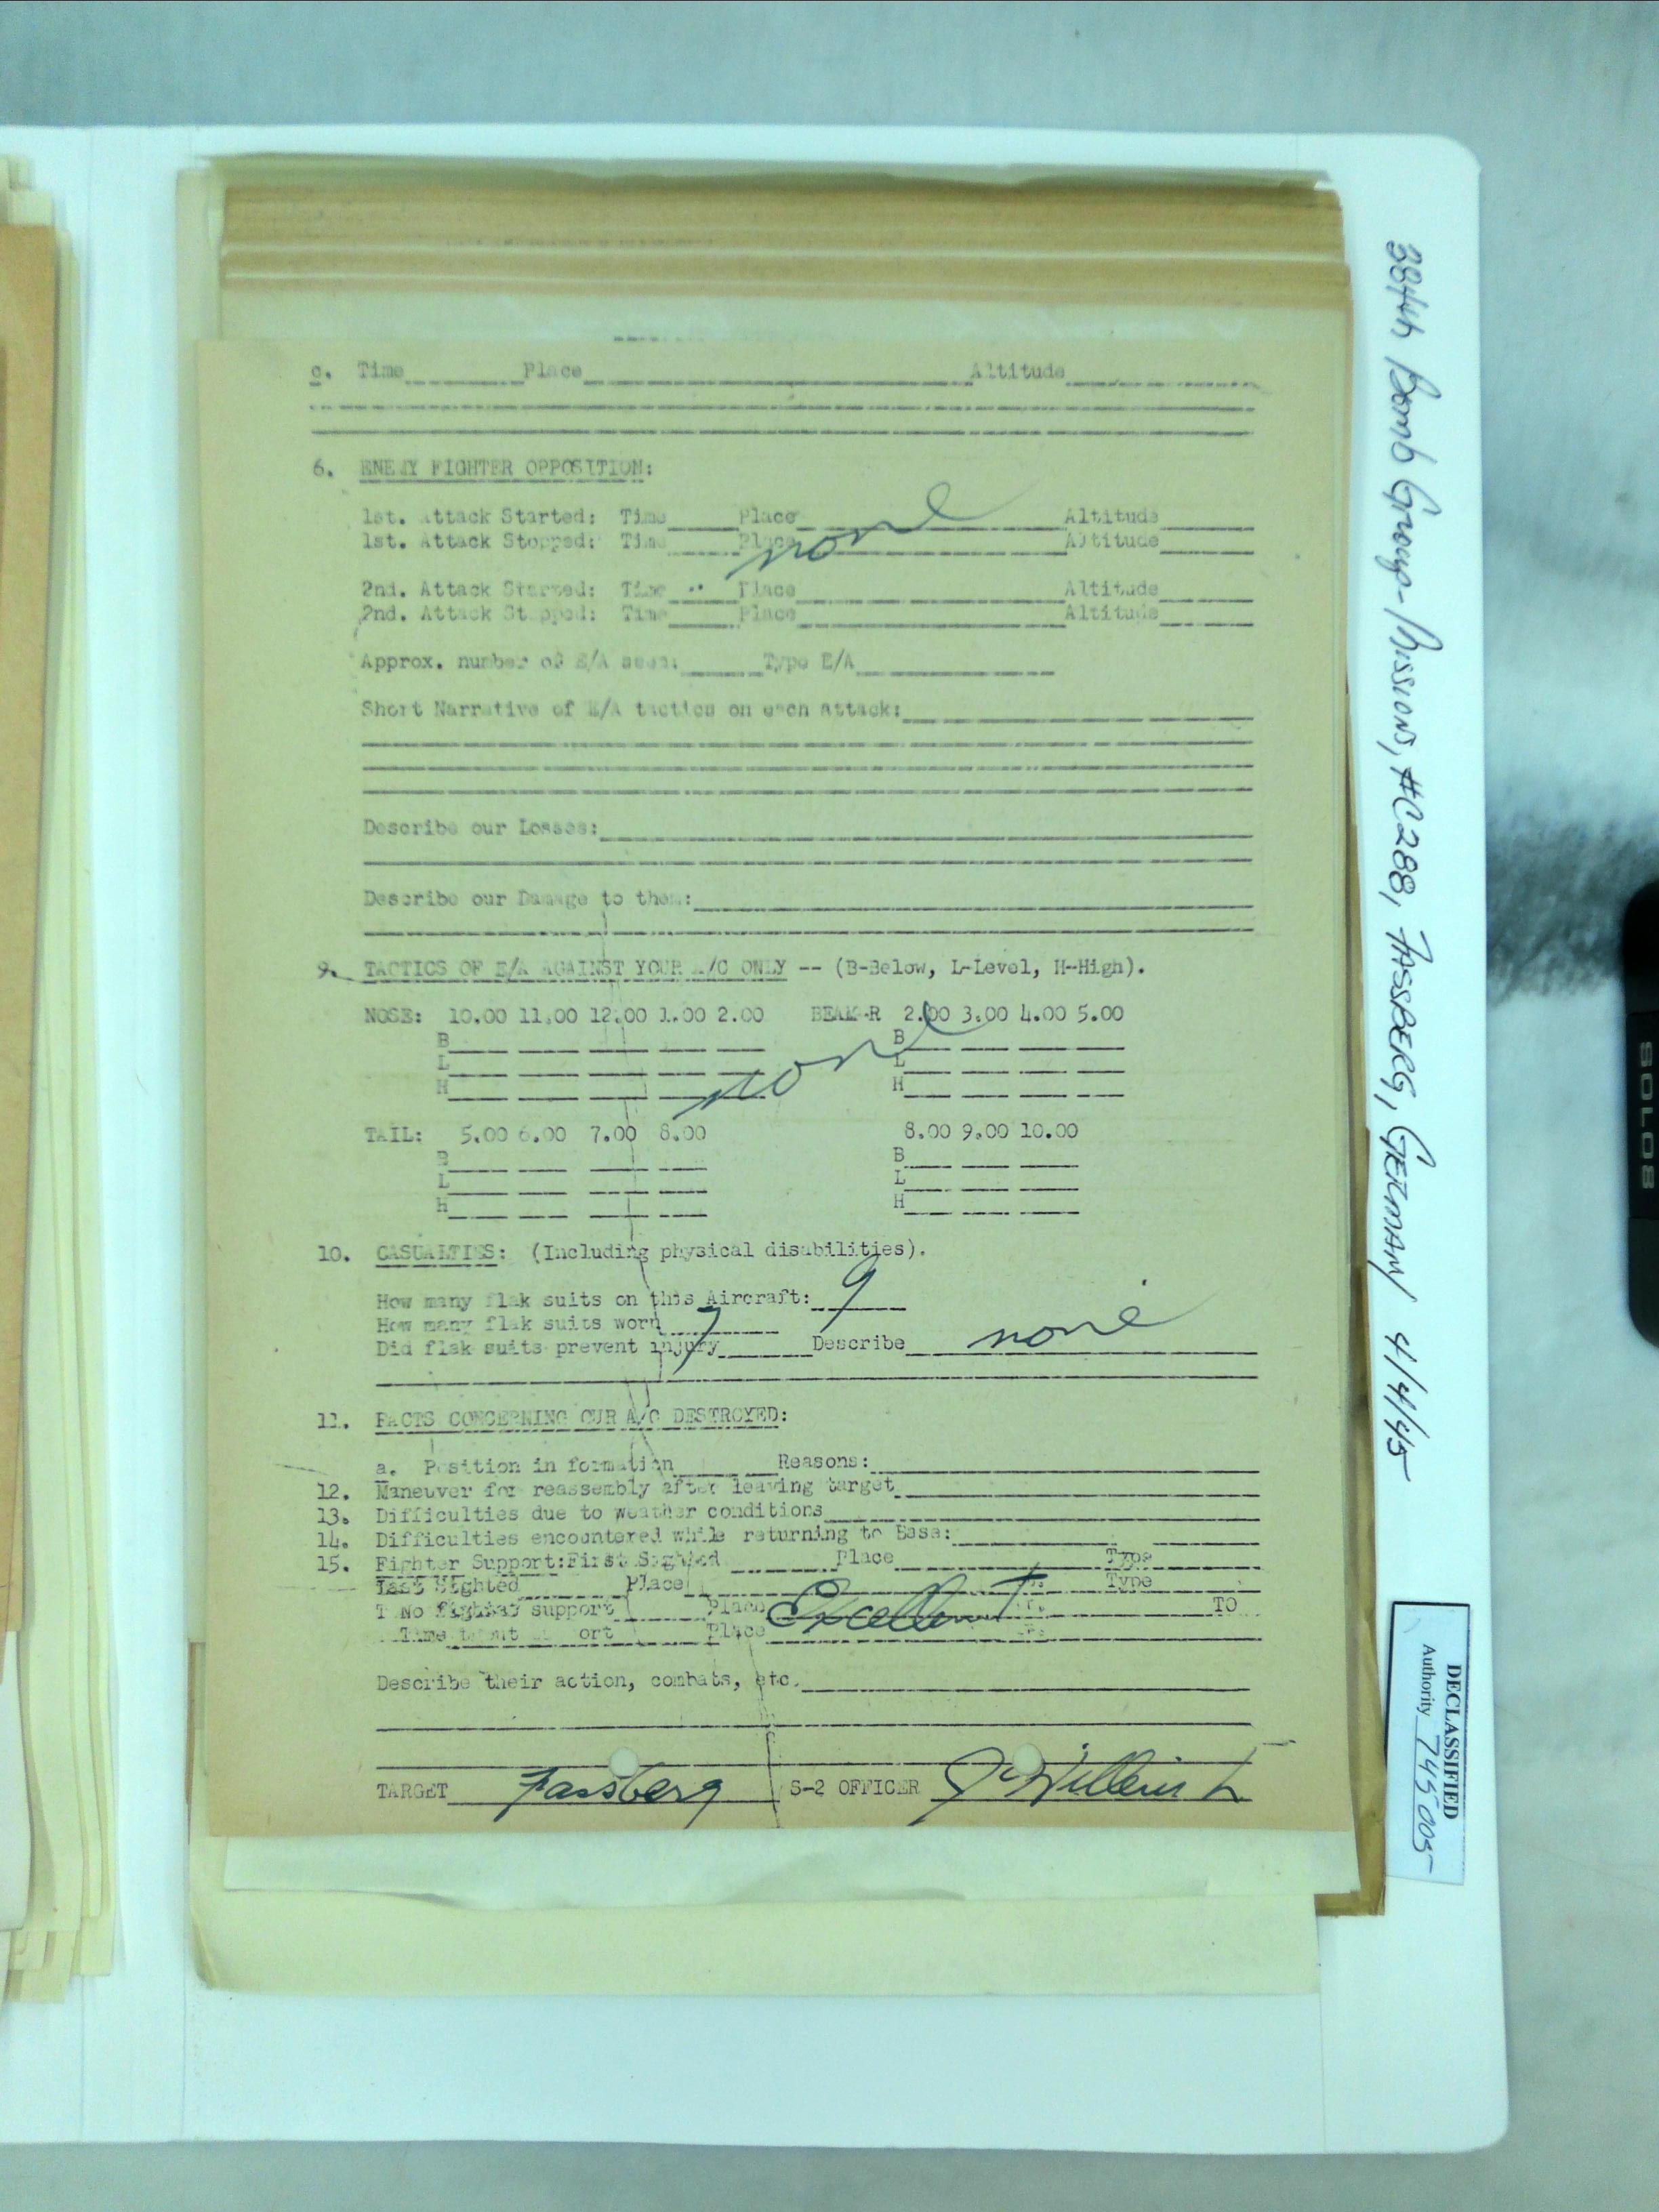 c. Time Place Altitude
6. ENEMY FIGHTER OPPOSITION:
1st. Attack Started: Time Place Altitude
1st. Attack Stopped: Time Place Altitude
none
2nd. Attack Started: Time Place Altitude
2nd. Attack Stopped: Time Place Altitude
Approx. number of E/A seen: Type E/A
Short Narrative of E/A tactics on each attack:
Describe our Losses:
Describe our Damage to them:
9. TACTICS OF E/A AGAINST YOUR A/C ONLY -- (B-Below, L-Level, H-High).
NOSE: 10.00 11.00 12.00 1.00 2.00 BEAM-R 2.00 3.00 4.00 5.00
B B
L L
H H
none
TAIL: 5.00 6.00 7.00 8.00 8.00 9.00 10.00
B B
L L
H H
10. CASUALTIES: (Including physical disabilities).
How many flak suits on this Aircraft: 9
How many flak suits worn 7
Did flak suits prevent injury Describe none
11. FACTS CONCERNING OUR A/C DESTROYED:
a. Position in formation Reasons:
12. Maneuver for reassembly after leaving target
13. Difficulties due to weather conditions
14. Difficulties encountered while returning to Base:
15. Fighter Support: First Sighted Place Type
Last Sighted Place Type
No fighter support Place Excellent TO
Time Place
Describe their action, combats, etc.
TARGET Fassberg S-2 OFFICER
384th Bomb Group-Mission, #C288, FASSBERG, GERMANY 4/4/45
DECLASSIFIED
Authority 745005
SOLO8